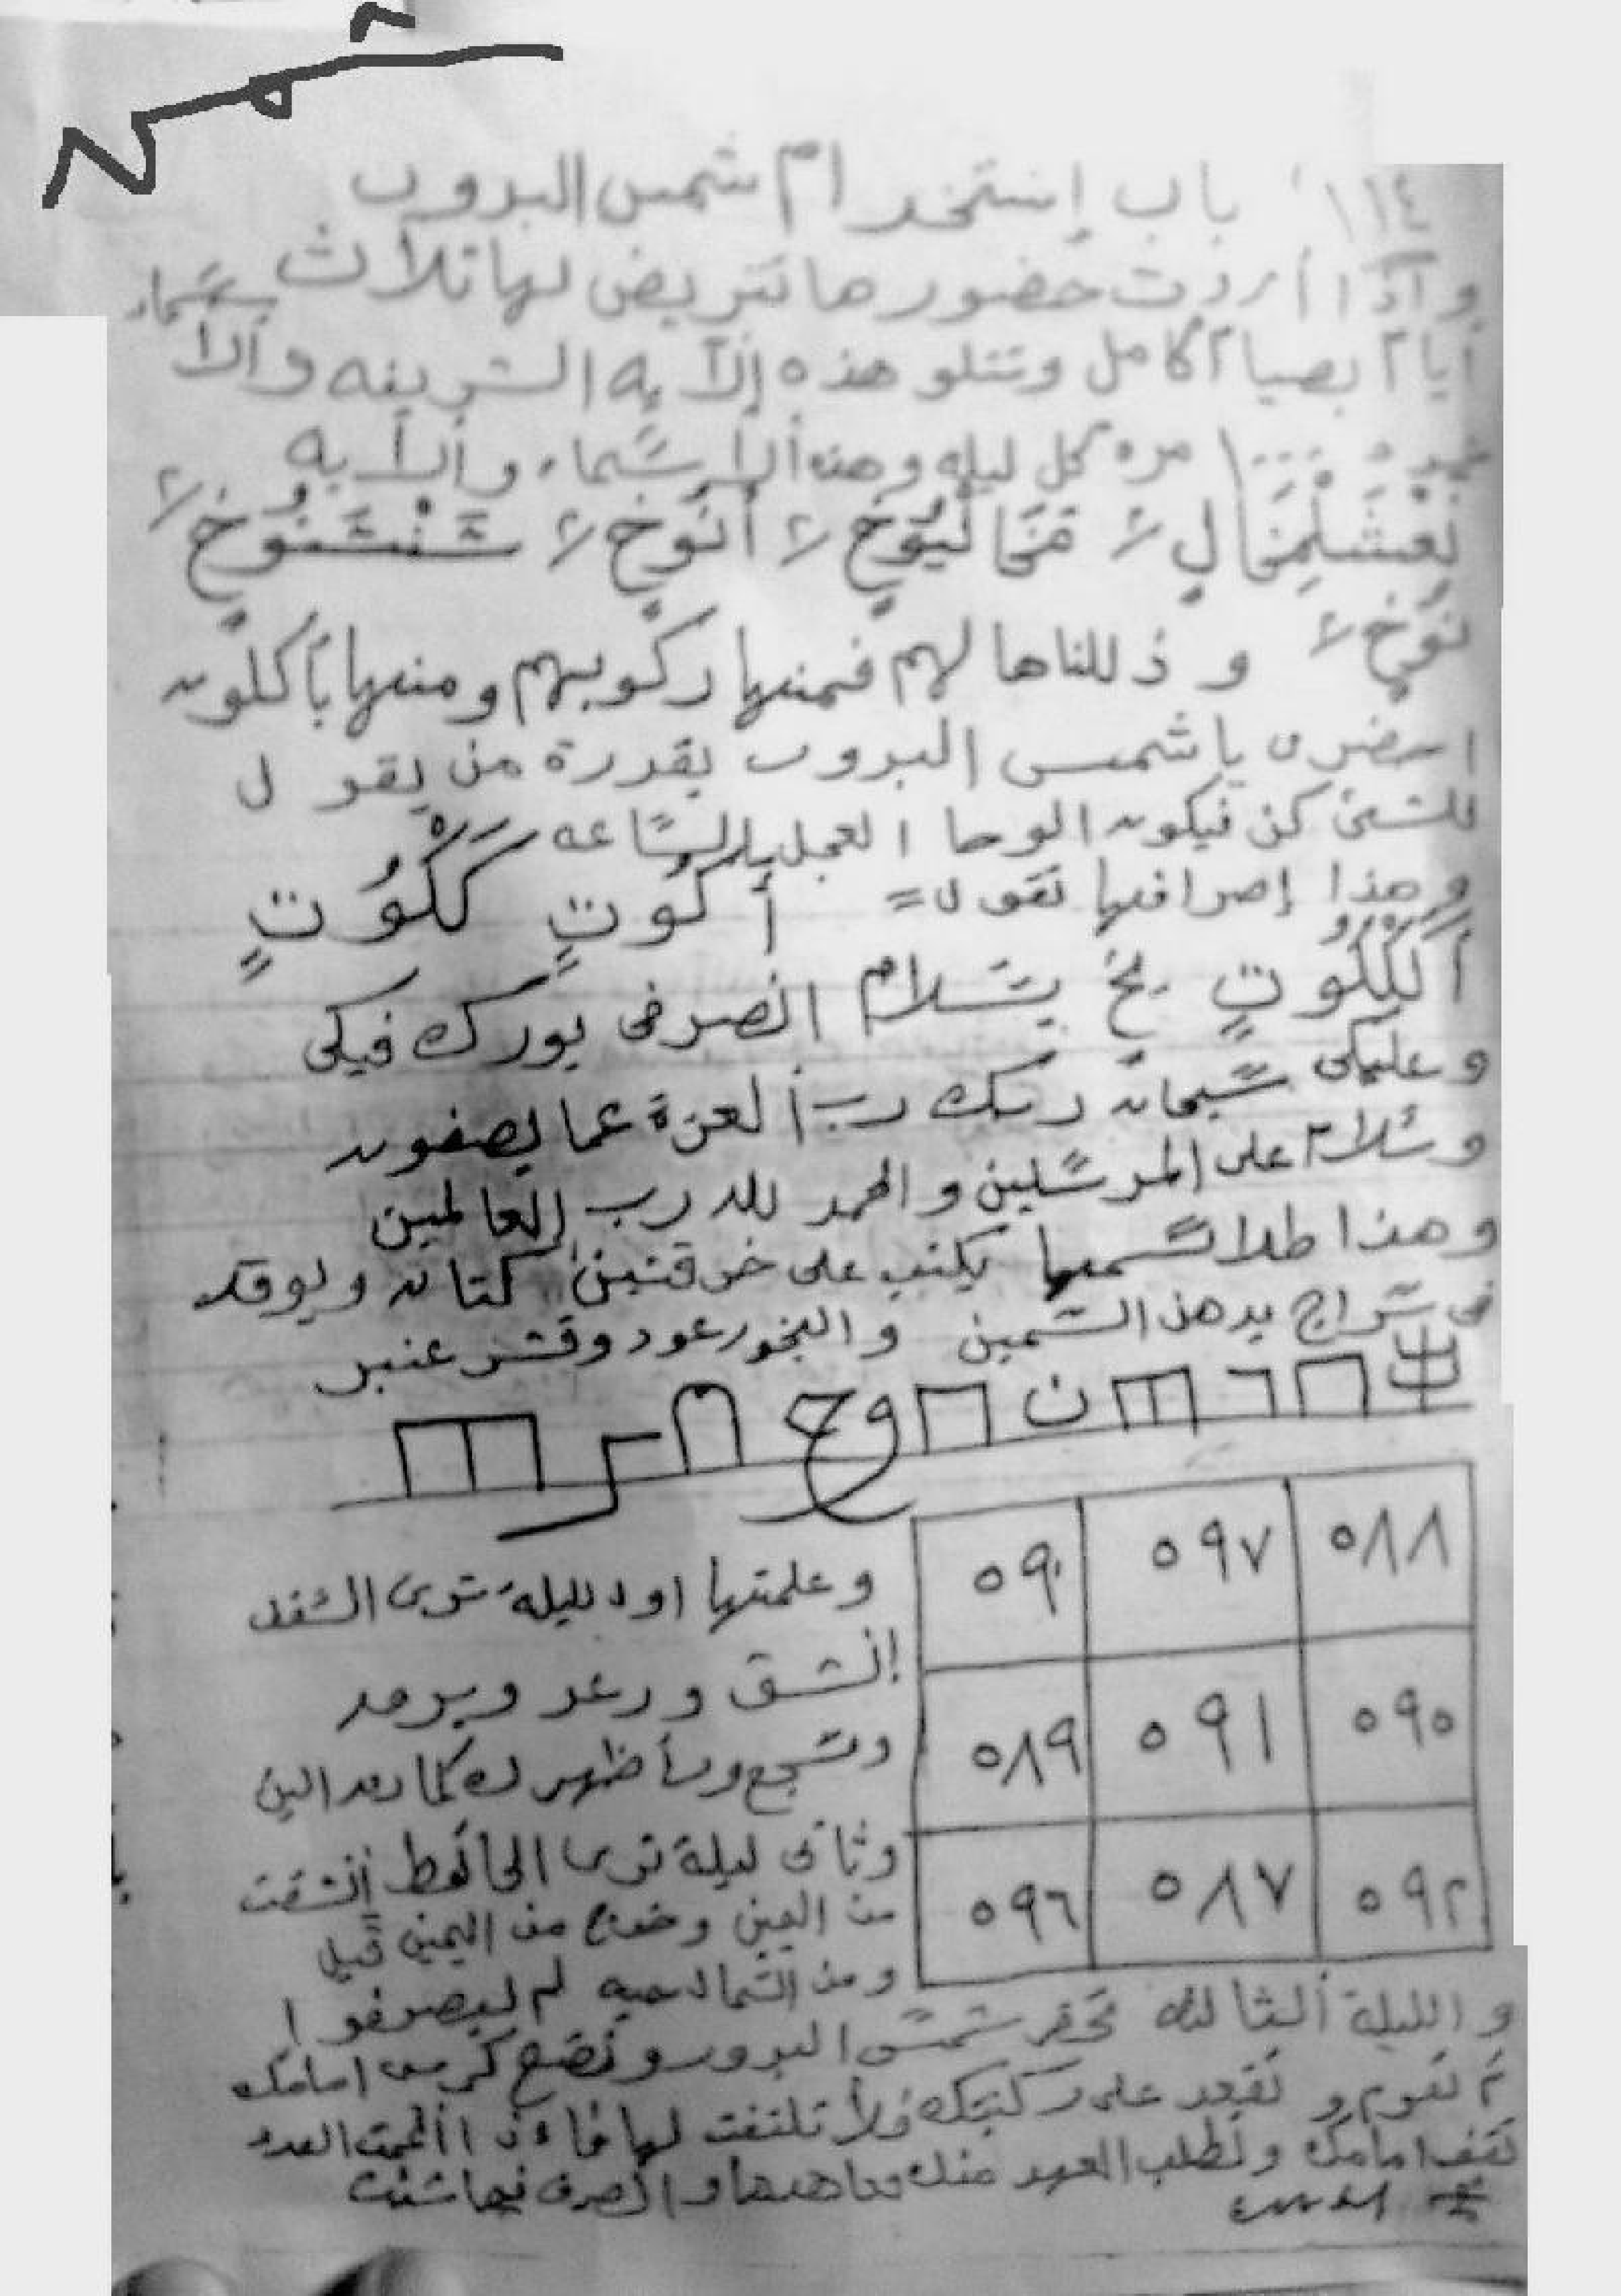 ١١٤ باب إستخدام شمس البدور
وآذا أردت حضورها تتريض لها ثلاث
أيام بصيام كامل وتتلو هذه الآيه الشريفه والأ
سماء
مره كل ليله وهذه ألأسماء والآيه
نَعْشَلْمِنَالٍ لا أنَوخٍ لا شَنْشَنُوخٍ لا
نوخٍ لا وذللناها لهم فمنها ركوبهم ومنها يأكلون
احضرى يا شمس البدور بقدرة من يقول
للشئ كن فيكون الوحا العجل الساعه
وهذا إصرافها تقول = أكُوتٍ كَكْوُتٍ
يخ بسلام انصرفى بورك فيكى
وعليكى سبحان ربك رب ألعزة عما يصفون
وسلام على المرسلين والحمد لله رب العالمين
وهذا طلاسمها يكتب على خرقتين كتان ويوقد
فى سراج بدهن السمين والبخور عود وقشر عنبر
٥٨٨ ٥٩٧ ٥٩٠
٥٩٥ ٥٩١ ٥٨٩
٥٩٢ ٥٨٧ ٥٩٦
وعلمتها اول ليلة ترى السقف
انشق ورعد وبرعد
ظهر لك كما
وثانى ليلة ترى الحائط إنشقت
من العين وخرج من اليمين فيل
ومن الشمال حيه لم ليصرفوا
والليلة الثالثه تحضر شمس البدور وتضع كرسى امامك
ثم تقوم و تقعد على ركبتك فلا تلتفت لها فاءذا اتممت العدد
تقف امامك وتطلب العهد منك فعاهدها واصرف فيما شئت